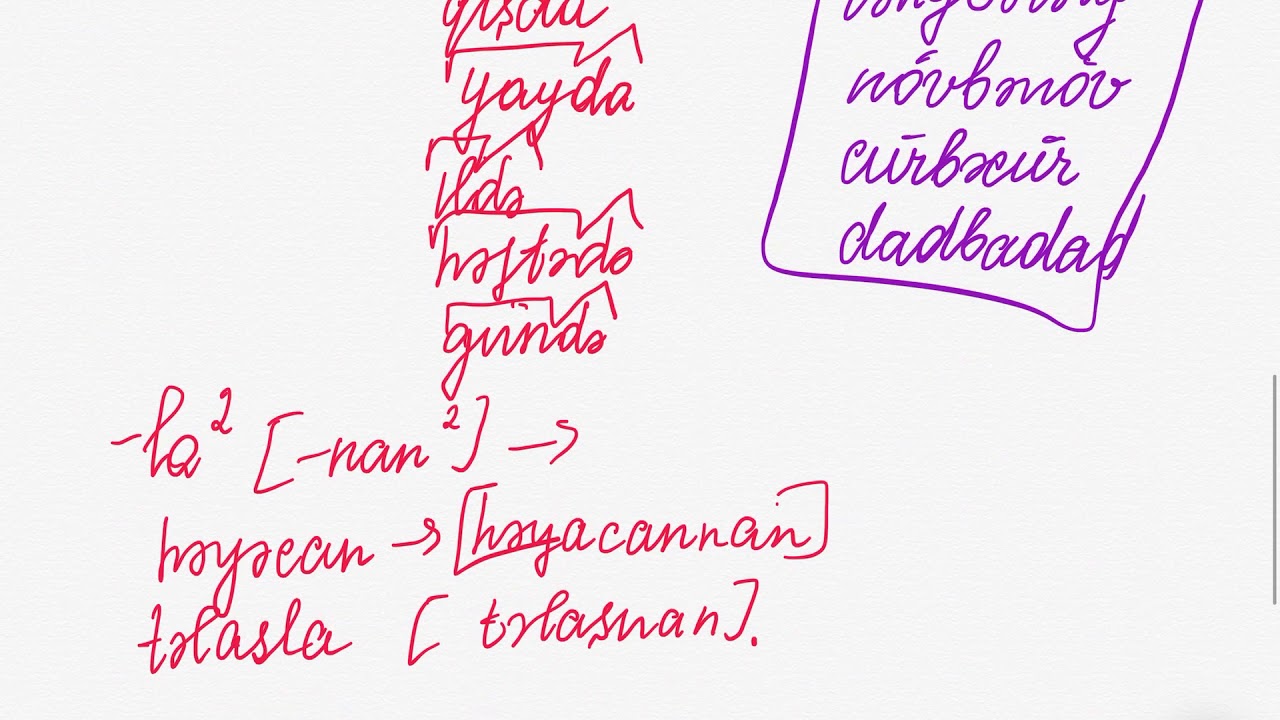 qışda
yayda
ildə
həftədə
gündə
növbənöv
cürbəcür
dadbadad
-la² [-nan²] →
həyəcan → [həyacannan]
təlasla [təlaşnan].